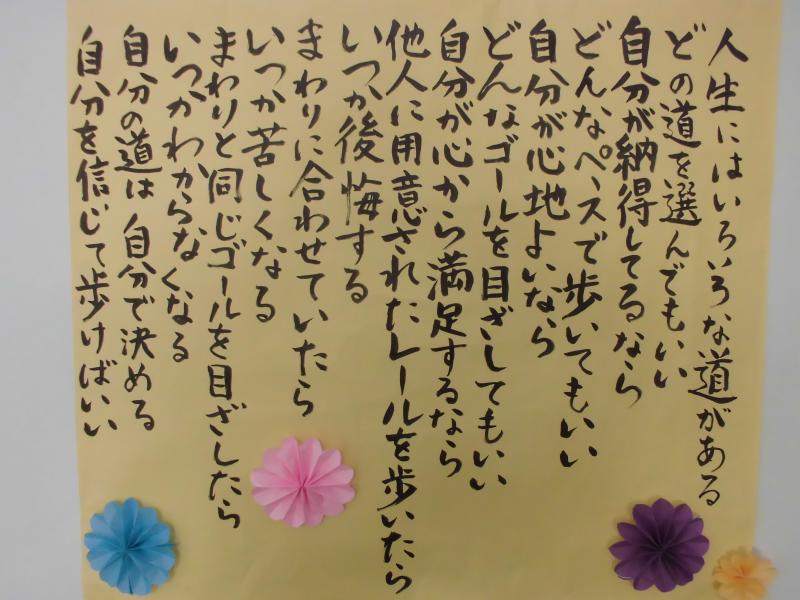 人生にはいろいろな道がある
どの道を選んでもいい
自分が納得してるなら
どんなペースで歩いてもいい
自分が心地よいなら
どんなゴールを目ざしてもいい
自分が心から満足するなら
他人に用意されたレールを歩いたら
いつか後悔する
まわりに合わせていたら
いつか苦しくなる
まわりと同じゴールを目ざしたら
いつかわからなくなる
自分の道は 自分で決める
自分を信じて歩けばいい